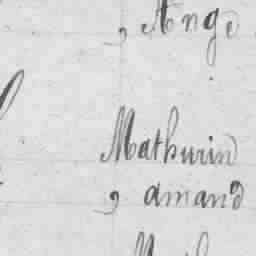 , Ange
Mathurin
, amand